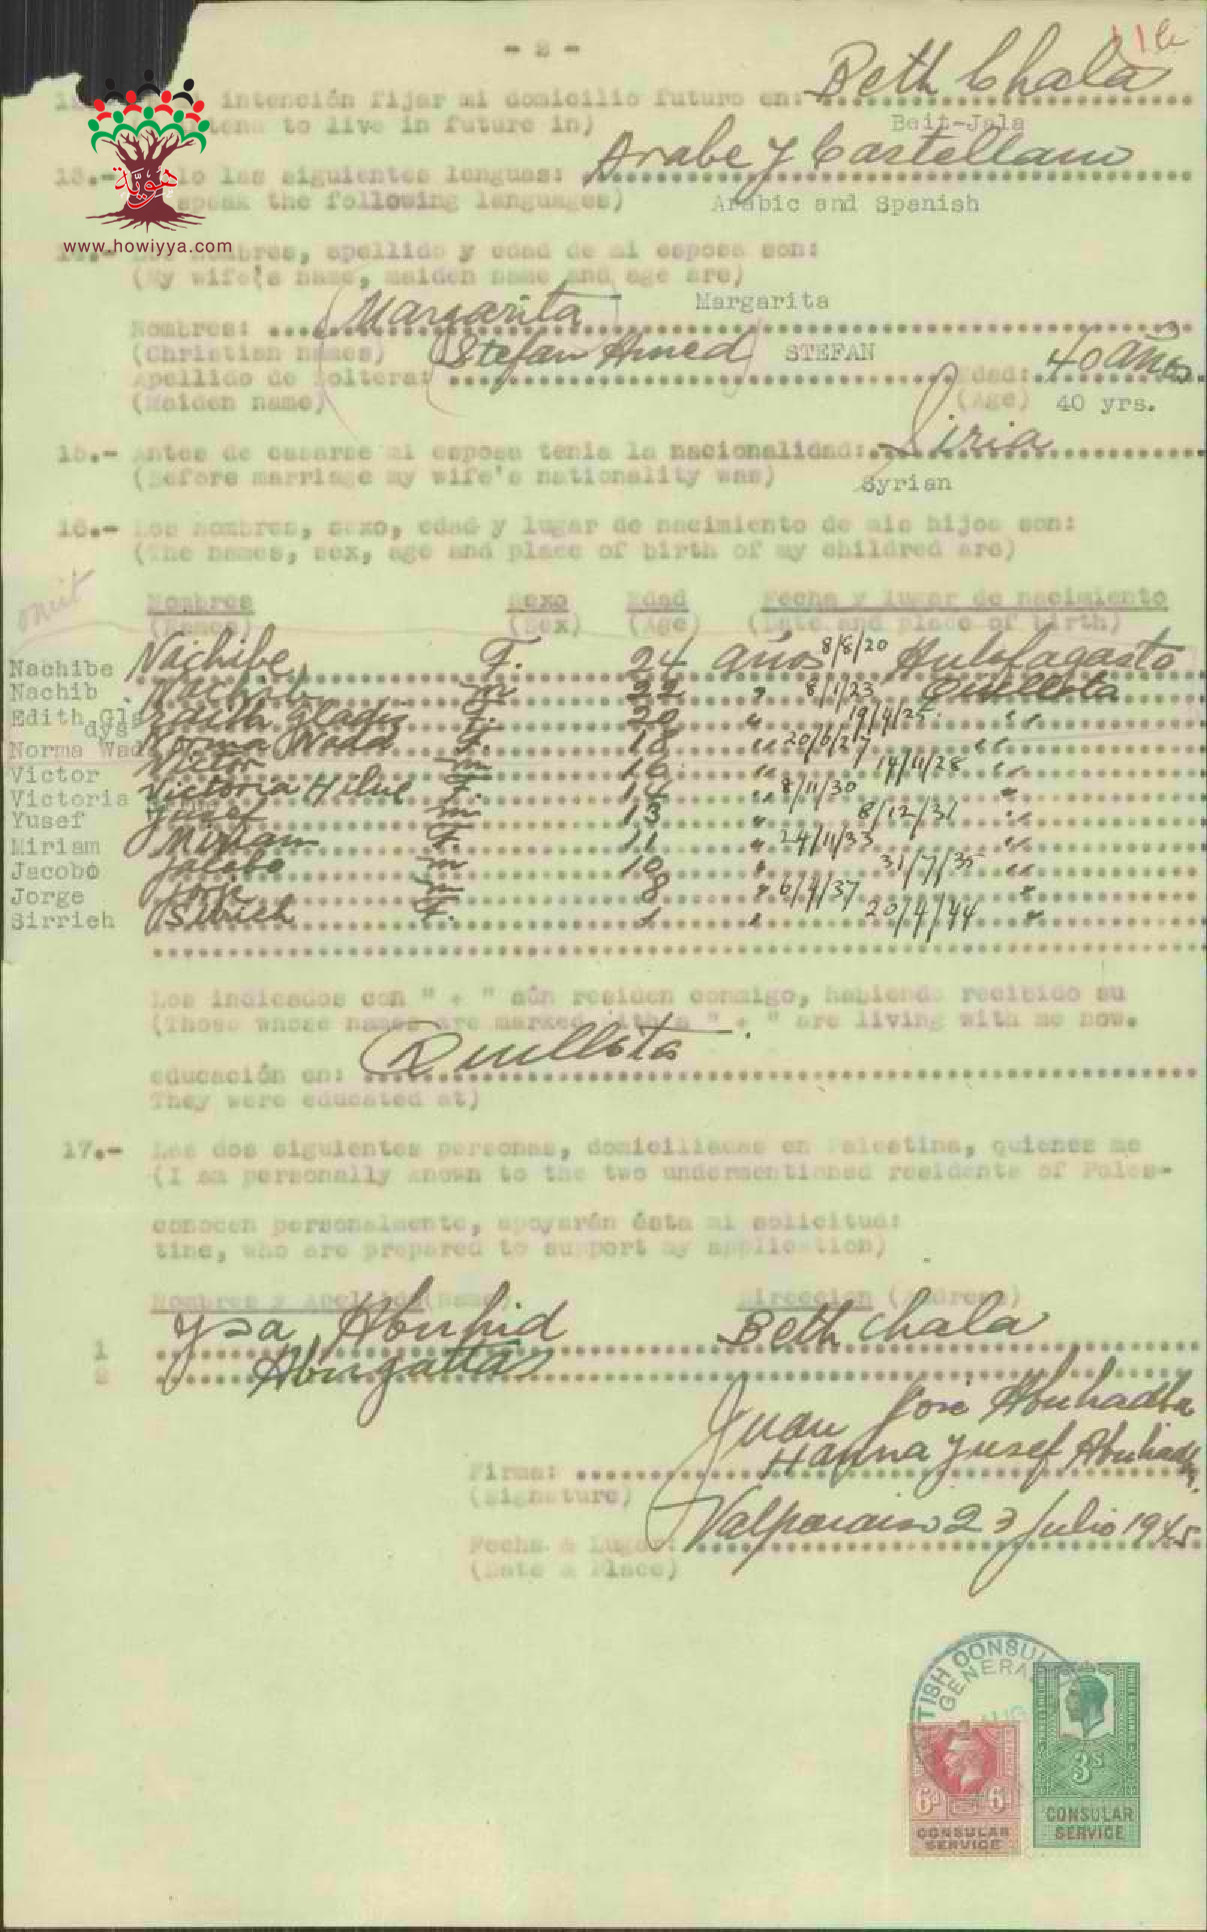 116
- 2 -
intención fijar mi domicilio futuro en: Beth Chala
to live in future in) Beit-Jala
13.- lo las siguientes lenguas: Arabe y Castellano
speak the following languages) Arabic and Spanish
هوية
www.howiyya.com
14.- Los nombres, apellido y edad de mi esposa son:
(My wife's name, maiden name and age are)
Nombres: Margarita Margarita
(Christian names) Stefan Amed STEFAN
Apellido de soltera: Edad: 40 años
(Maiden name) (Age) 40 yrs.
15.- Antes de casarse mi esposa tenia la nacionalidad: Siria
(Before marriage my wife's nationality was) Syrian
16.- Los nombres, sexo, edad y lugar de nacimiento de mis hijos son:
(The names, sex, age and place of birth of my childred are)
omit
Nombres Sexo Edad Fecha y lugar de nacimiento
(Names) (Sex) (Age) (Date and place of birth)
Nachibe Nachibe F. 24 años 8/8/20 Antofagasta
Nachib Nachib m 22 " 8/1/23 Quillota
Edith Gla Edith Gladis F. 20 " 19/4/25 "
dys
Norma Wad Norma Wadd F. 18 " 20/6/27 "
Victor Victor m 16 " 14/11/28 "
Victoria Victoria Hilue F. 14 " 8/11/30 "
Yusef Jusef m 13 " 8/12/31 "
Miriam Miriam F. 11 " 24/11/33 "
Jacobo Jacobo m 10 " 31/7/35 "
Jorge Jorje m 8 " 6/4/37 "
Sirrieh Sirrieh F. 1 " 20/4/44 "
Los indicados con " + " aún residen conmigo, habiendo recibido su
(Those whose names are marked with a " + " are living with me now.
educación en: Quillota
They were educated at)
17.- Las dos siguientes personas, domiciliadas en Palestina, quienes me
(I am personally known to the two undermentioned residents of Pales-
conocen personalmente, apoyarán ésta mi solicitud:
tine, who are prepared to support my application)
Nombres y Apellido (Name) Direccion (Address)
1 Ysa Abuhid Beth Chala
2 Abugattas
Juan José Abuhadba
Firma: Hanna Jusef Abuhadba
(Signature)
Fecha & Lugar: Valparaiso 23 Julio 1945
(Date & Place)
BRITISH CONSULATE
GENERAL
AUG
6d 6d
CONSULAR
SERVICE
3s
CONSULAR
SERVICE